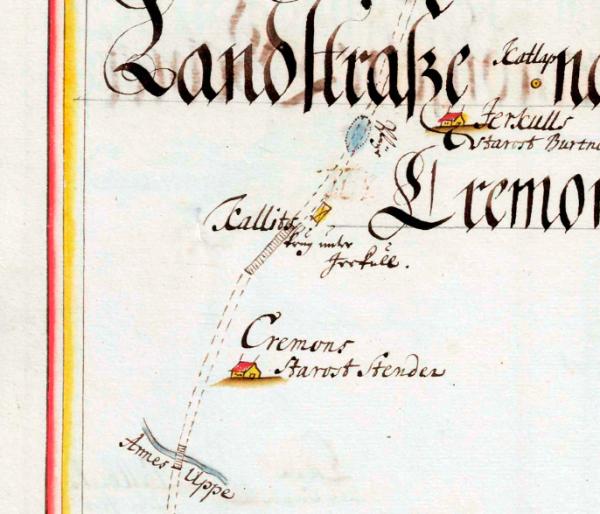 Landstraße na
Jerkulls
Starost Burtn
Cremon
Kallits
krug unter
Jerkull.
Cremons
Starost Stender
Annes Uppe